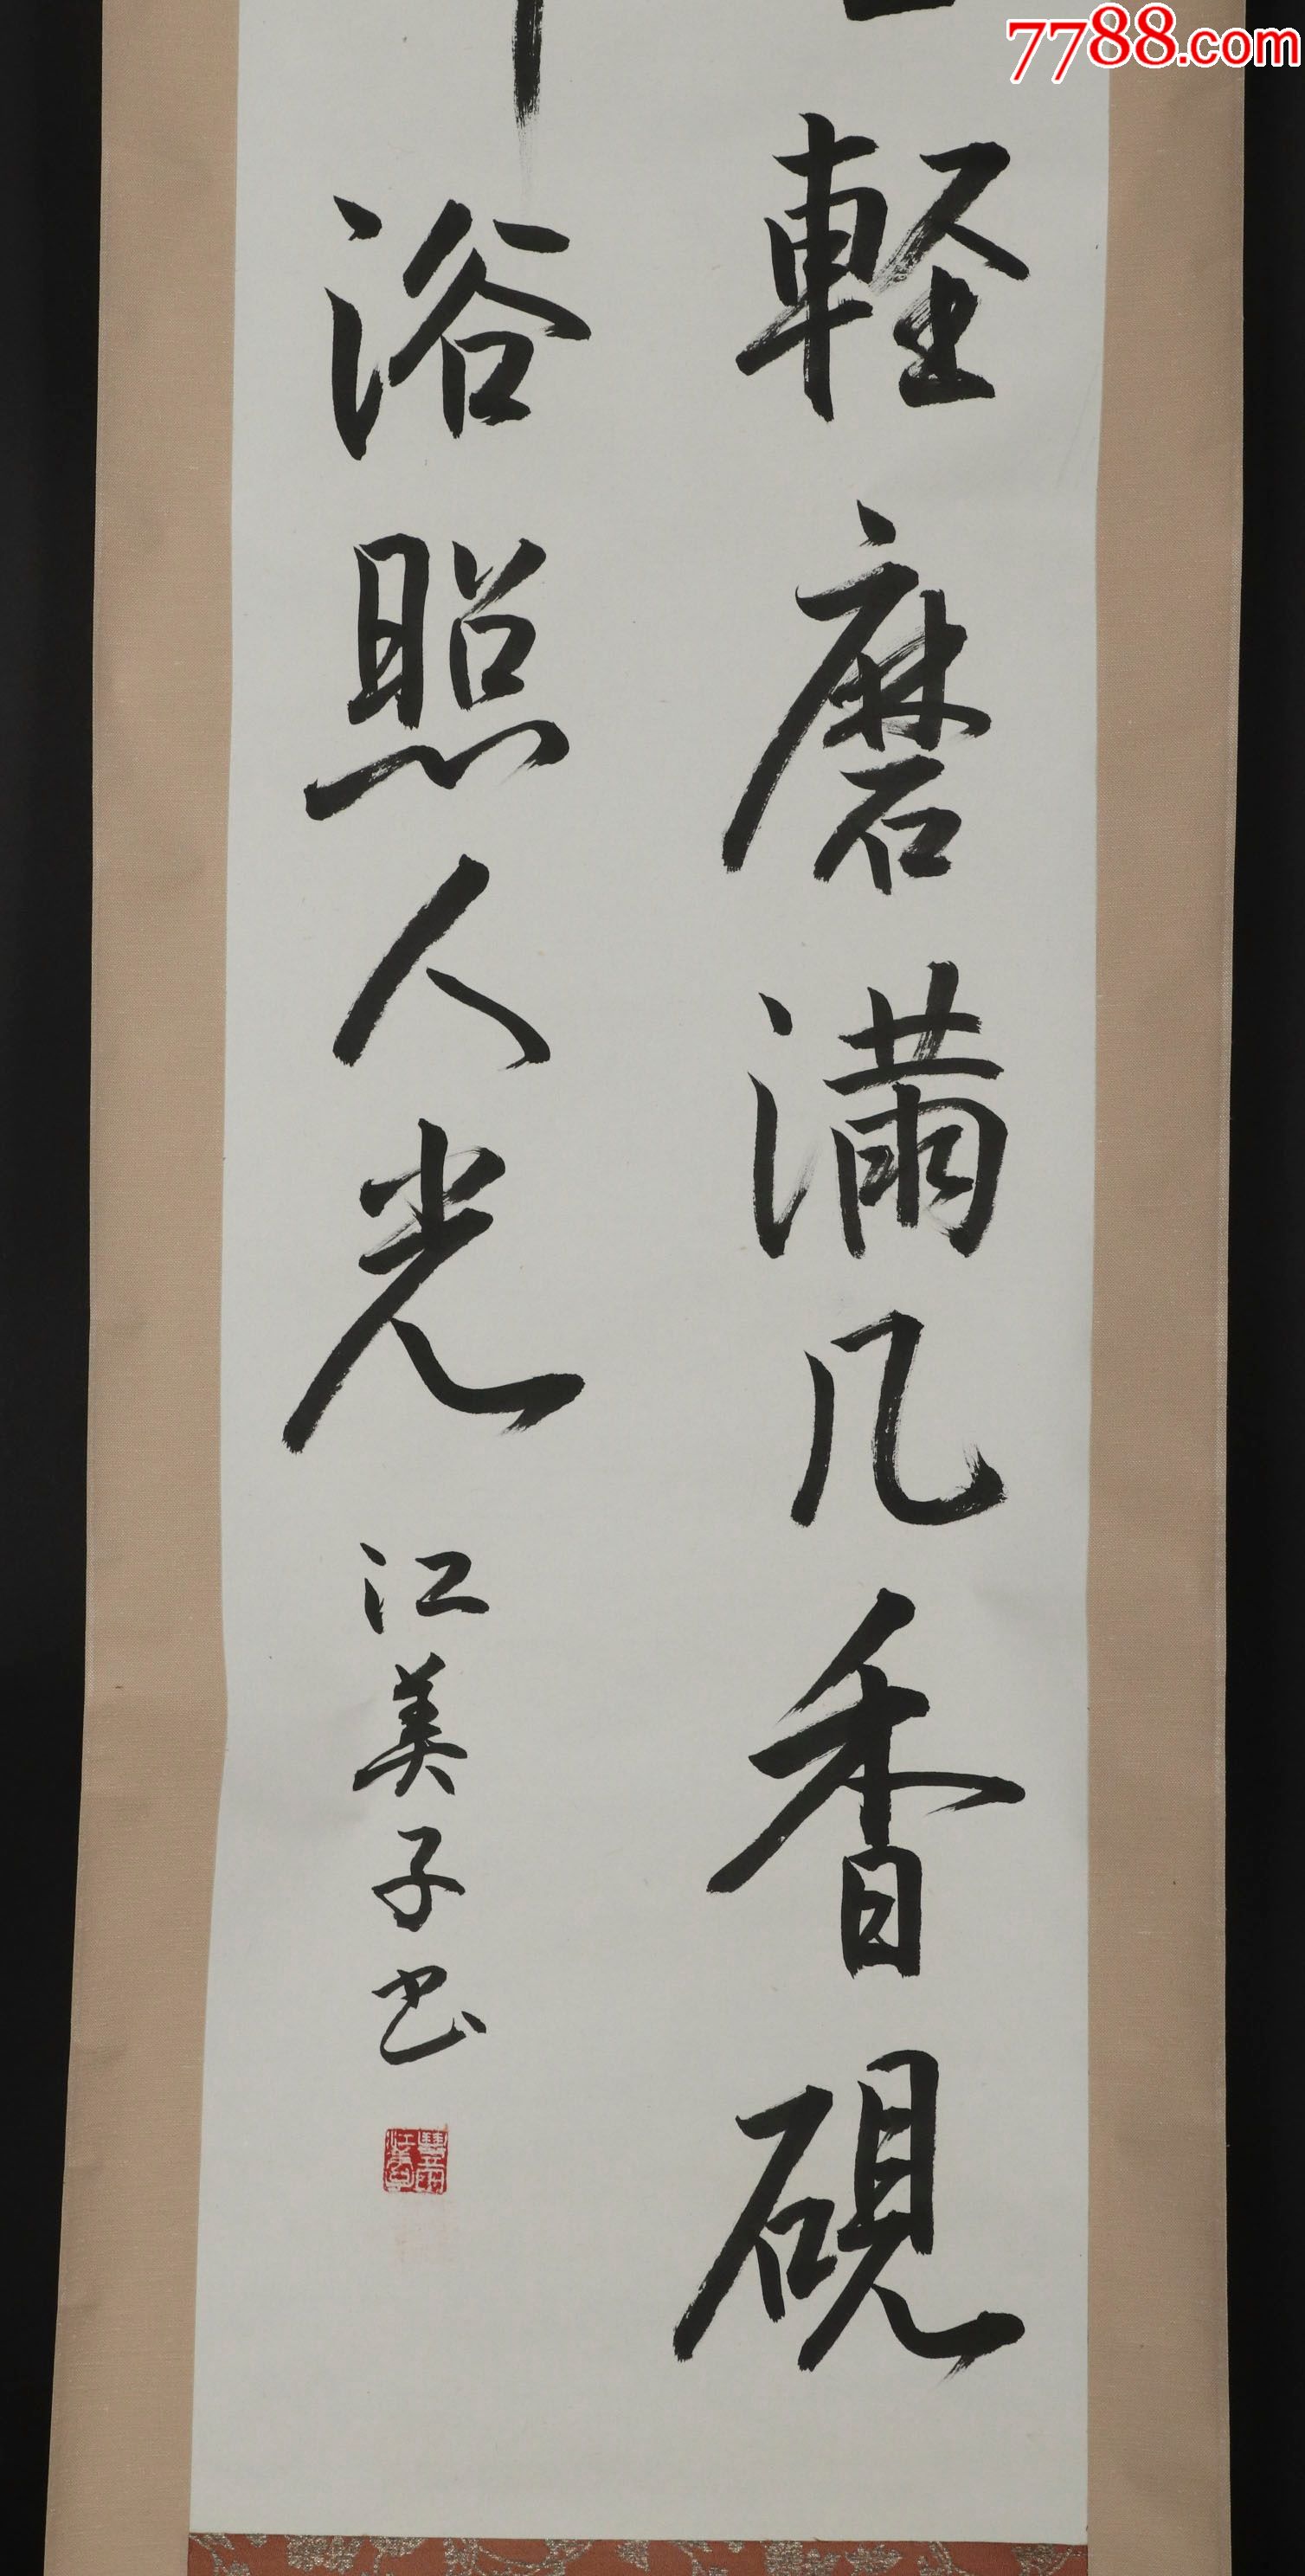 7788.com
軽磨满几香硯
浴照人光
江美子书